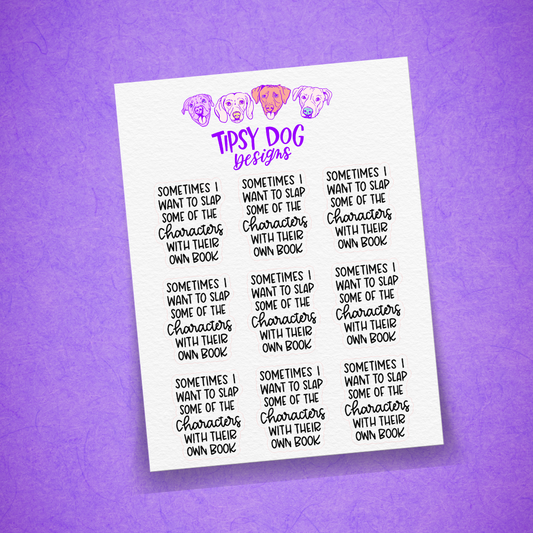 TIPSY DOG
Designs
SOMETIMES I
WANT TO SLAP
SOME OF THE
Characters
WITH THEIR
OWN BOOK
SOMETIMES I
WANT TO SLAP
SOME OF THE
Characters
WITH THEIR
OWN BOOK
SOMETIMES I
WANT TO SLAP
SOME OF THE
Characters
WITH THEIR
OWN BOOK
SOMETIMES I
WANT TO SLAP
SOME OF THE
Characters
WITH THEIR
OWN BOOK
SOMETIMES I
WANT TO SLAP
SOME OF THE
Characters
WITH THEIR
OWN BOOK
SOMETIMES I
WANT TO SLAP
SOME OF THE
Characters
WITH THEIR
OWN BOOK
SOMETIMES I
WANT TO SLAP
SOME OF THE
Characters
WITH THEIR
OWN BOOK
SOMETIMES I
WANT TO SLAP
SOME OF THE
Characters
WITH THEIR
OWN BOOK
SOMETIMES I
WANT TO SLAP
SOME OF THE
Characters
WITH THEIR
OWN BOOK